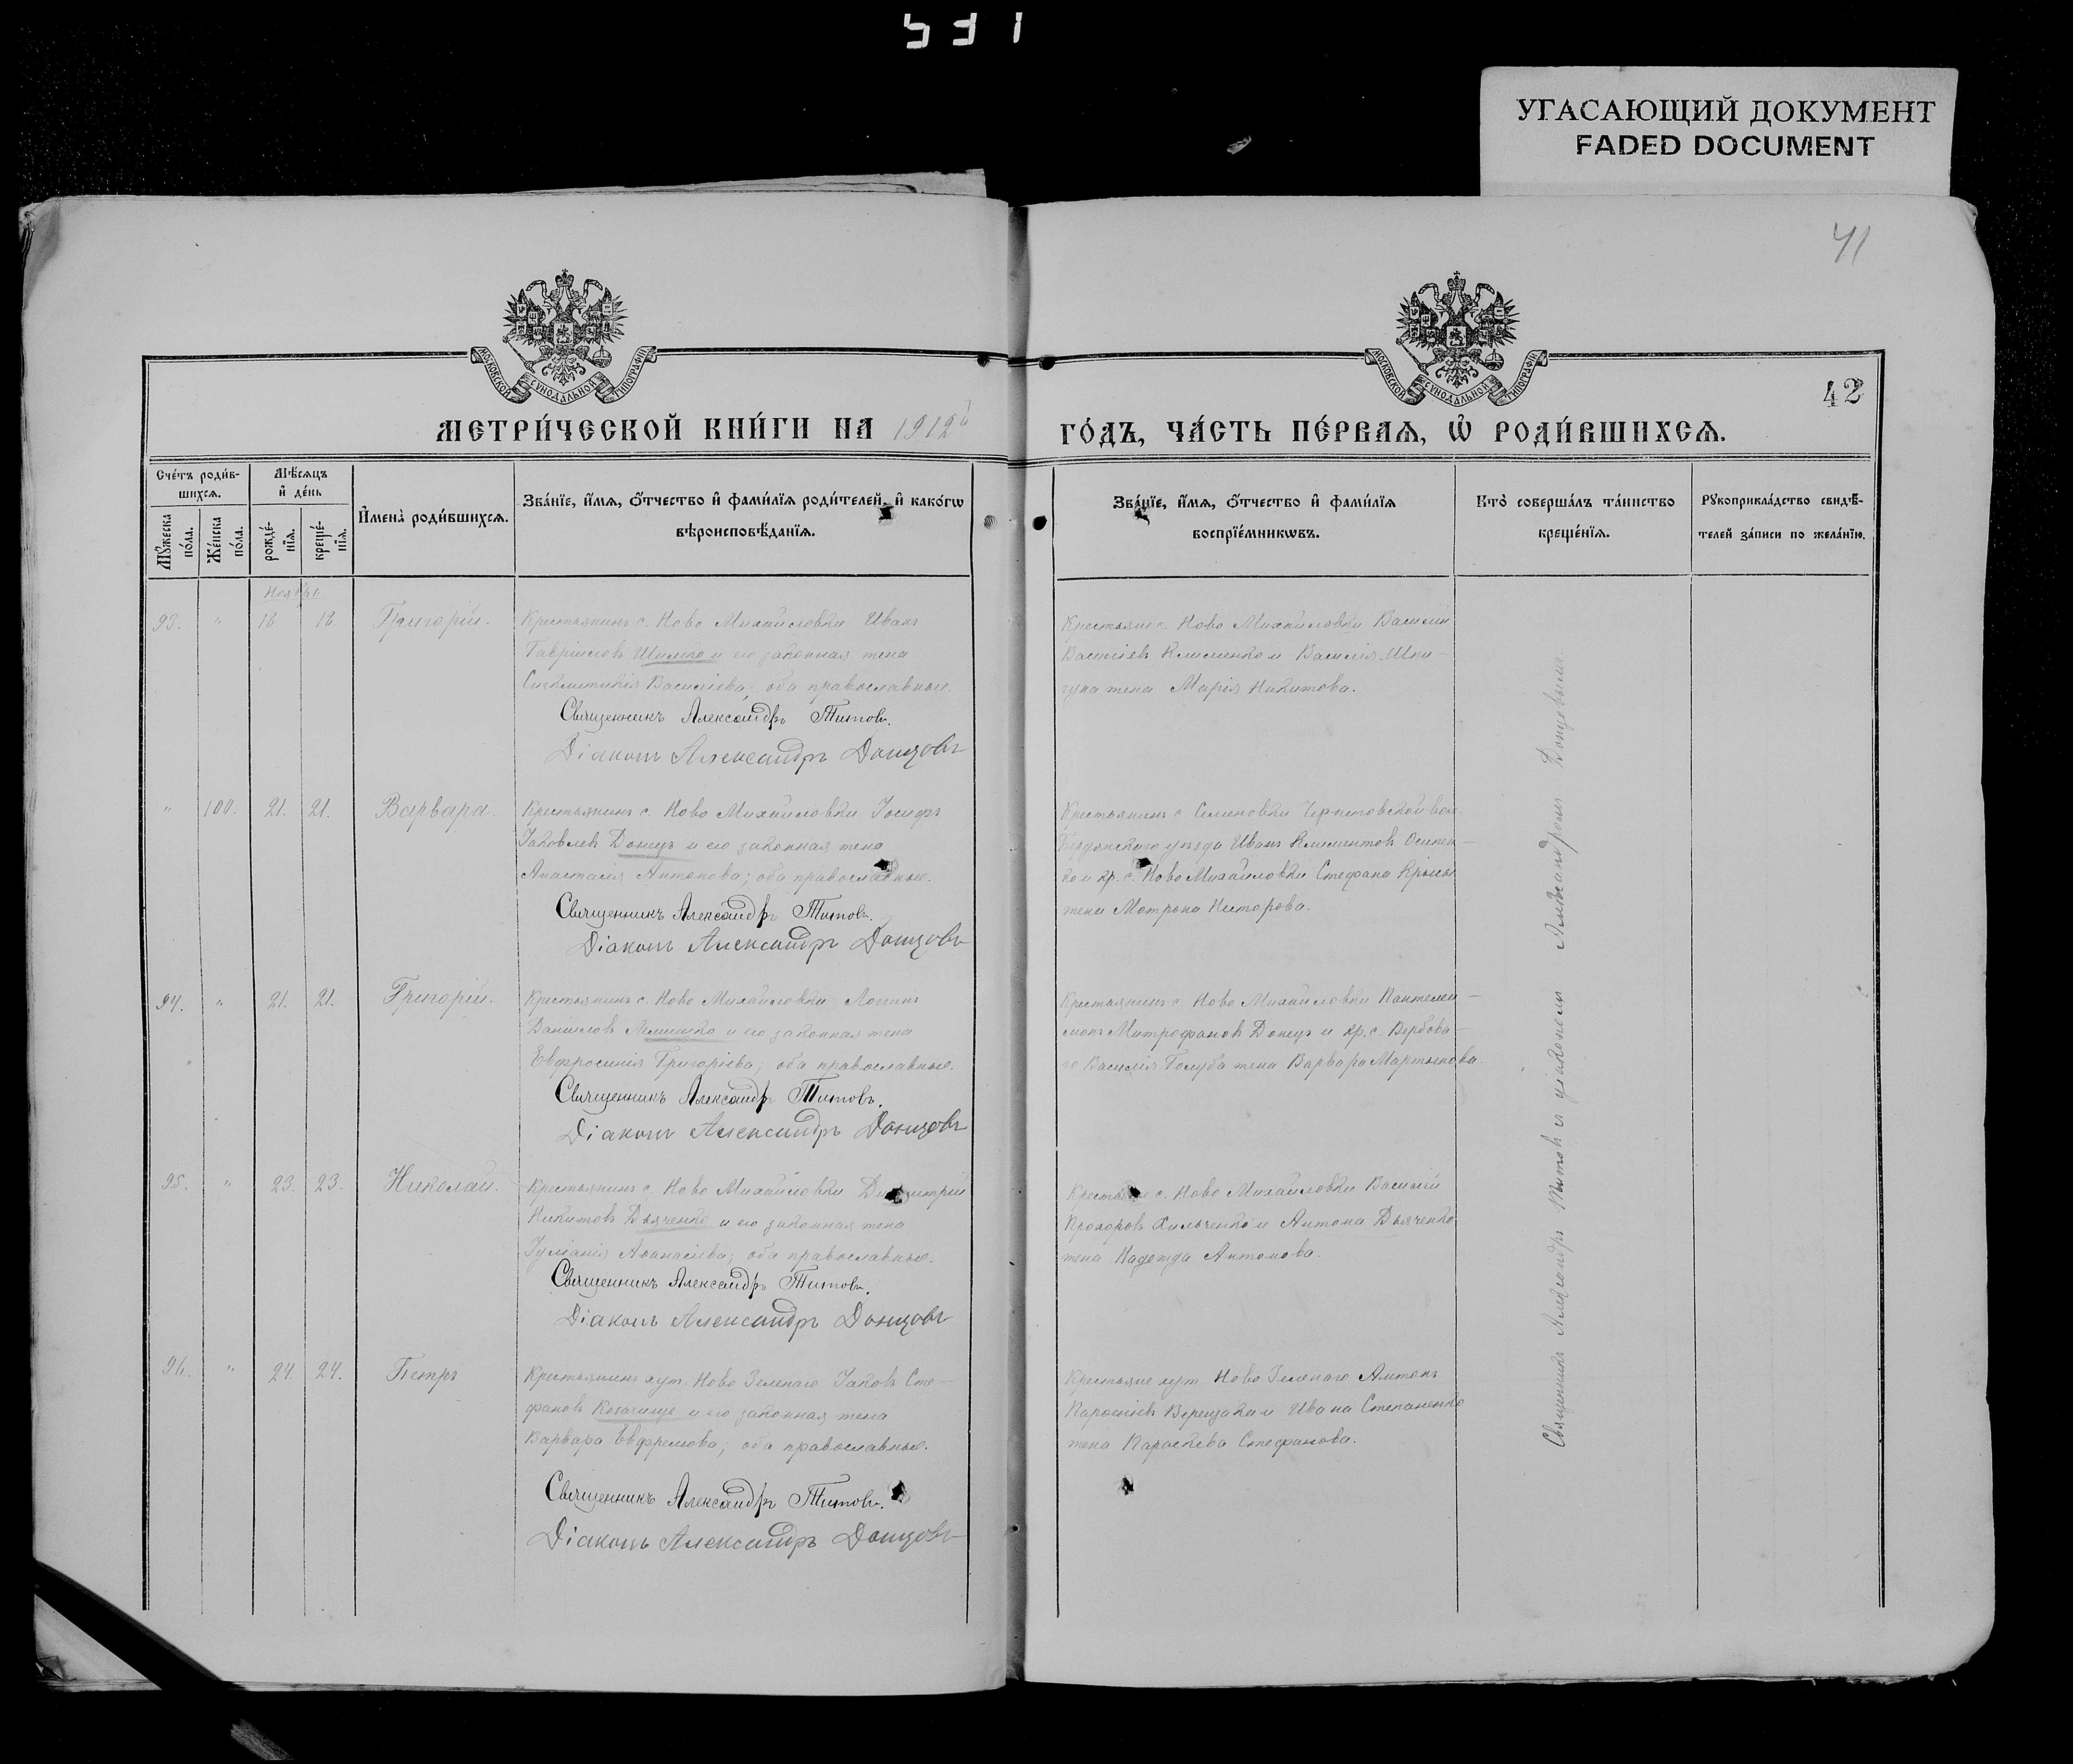 УГАСАЮЩИЙ ДОКУМЕНТ
FADED DOCUMENT
41
МОСКОВСКОЙ СѴНОДАЛЬНОЙ ТИПОГРАФІИ
МОСКОВСКОЙ СѴНОДАЛЬНОЙ ТИПОГРАФІИ
42
МЕТРИ́ЧЕСКОЙ КНИ́ГИ НА 1912й
ГО́ДЪ, ЧА́СТЬ ПЕ́РВАѦ, Ѡ҆ РОДИ́ВШИХСѦ.
Сче́тъ роди́в-
шихсѧ.
Мꙋ́жеска по́ла.
Же́нска по́ла.
Мѣ́сѧцъ
и҆ де́нь
рожде́-
нїѧ.
креще́-
нїѧ.
И҆мена̀ роди́вшихсѧ.
Зва́нїе, и҆́мѧ, ѻ҆́тчество и҆ фами́лїѧ роди́телей, и҆ како́гѡ
вѣроисповѣ́данїѧ.
Зва́нїе, и҆́мѧ, ѻ҆́тчество и҆ фами́лїѧ
воспрїе́мникѡвъ.
Кто̀ соверша́лъ та́инство
креще́нїѧ.
Рꙋкоприкла́дство свидѣ́-
телей за́писи по жела́нїю.
Ноября
93. " 18. 18. Григорій.
Крестьянинъ с. Ново Михайловки Иванъ
Гавріиловъ Шилко и его законная жена
Синклитикія Василіева; оба православные.
Священникъ Александръ Титовъ.
Діаконъ Александръ Донцовъ
Крестьяне с. Ново Михайловки Василій
Васильевъ Клименко и Василія Шпи-
гуна жена Марія Никитова.
" 100. 21. 21. Варвара.
Крестьянинъ с. Ново Михайловки Іосифъ
Іаковлевъ Донецъ и его законная жена
Анастасія Антонова; оба православные.
Священникъ Александръ Титовъ.
Діаконъ Александръ Донцовъ
Крестьянинъ с. Семеновки Черниговской вол.
Бердянскаго уѣзда Иванъ Климентовъ Осипен-
ко и кр. с. Ново Михайловки Стефана Крысы
жена Матрона Несторова.
94. " 21. 21. Григорій.
Крестьянинъ с. Ново Михайловки Логинъ
Даніиловъ Лемешко и его законная жена
Евфросинія Григоріева; оба православные.
Священникъ Александръ Титовъ.
Діаконъ Александръ Донцовъ
Крестьянинъ с. Ново Михайловки Пантелеи-
монъ Митрофановъ Донецъ и кр. с. Вербова-
го Василія Голуба жена Варвара Мартынова.
95. " 23. 23. Николай.
Крестьянинъ с. Ново Михайловки Димитрій
Никитовъ Дьяченко и его законная жена
Іуліанія Аѳанасіева; оба православные.
Священникъ Александръ Титовъ.
Діаконъ Александръ Донцовъ
Крестьяне с. Ново Михайловки Василій
Прохоровъ Хильченко и Антона Дьяченко
жена Надежда Антонова.
96. " 24. 24. Петръ
Крестьянинъ хут. Ново Зеленаго Іаковъ Сте-
фановъ Козачище и его законная жена
Варвара Евфремова; оба православные.
Священникъ Александръ Титовъ.
Діаконъ Александръ Донцовъ
Крестьяне хут. Ново Зеленаго Антонъ
Парѳеніевъ Верещака и Ивана Степаненко
жена Параскева Стефанова.
Священникъ Александръ Титовъ и діакономъ Александромъ Донцовымъ.